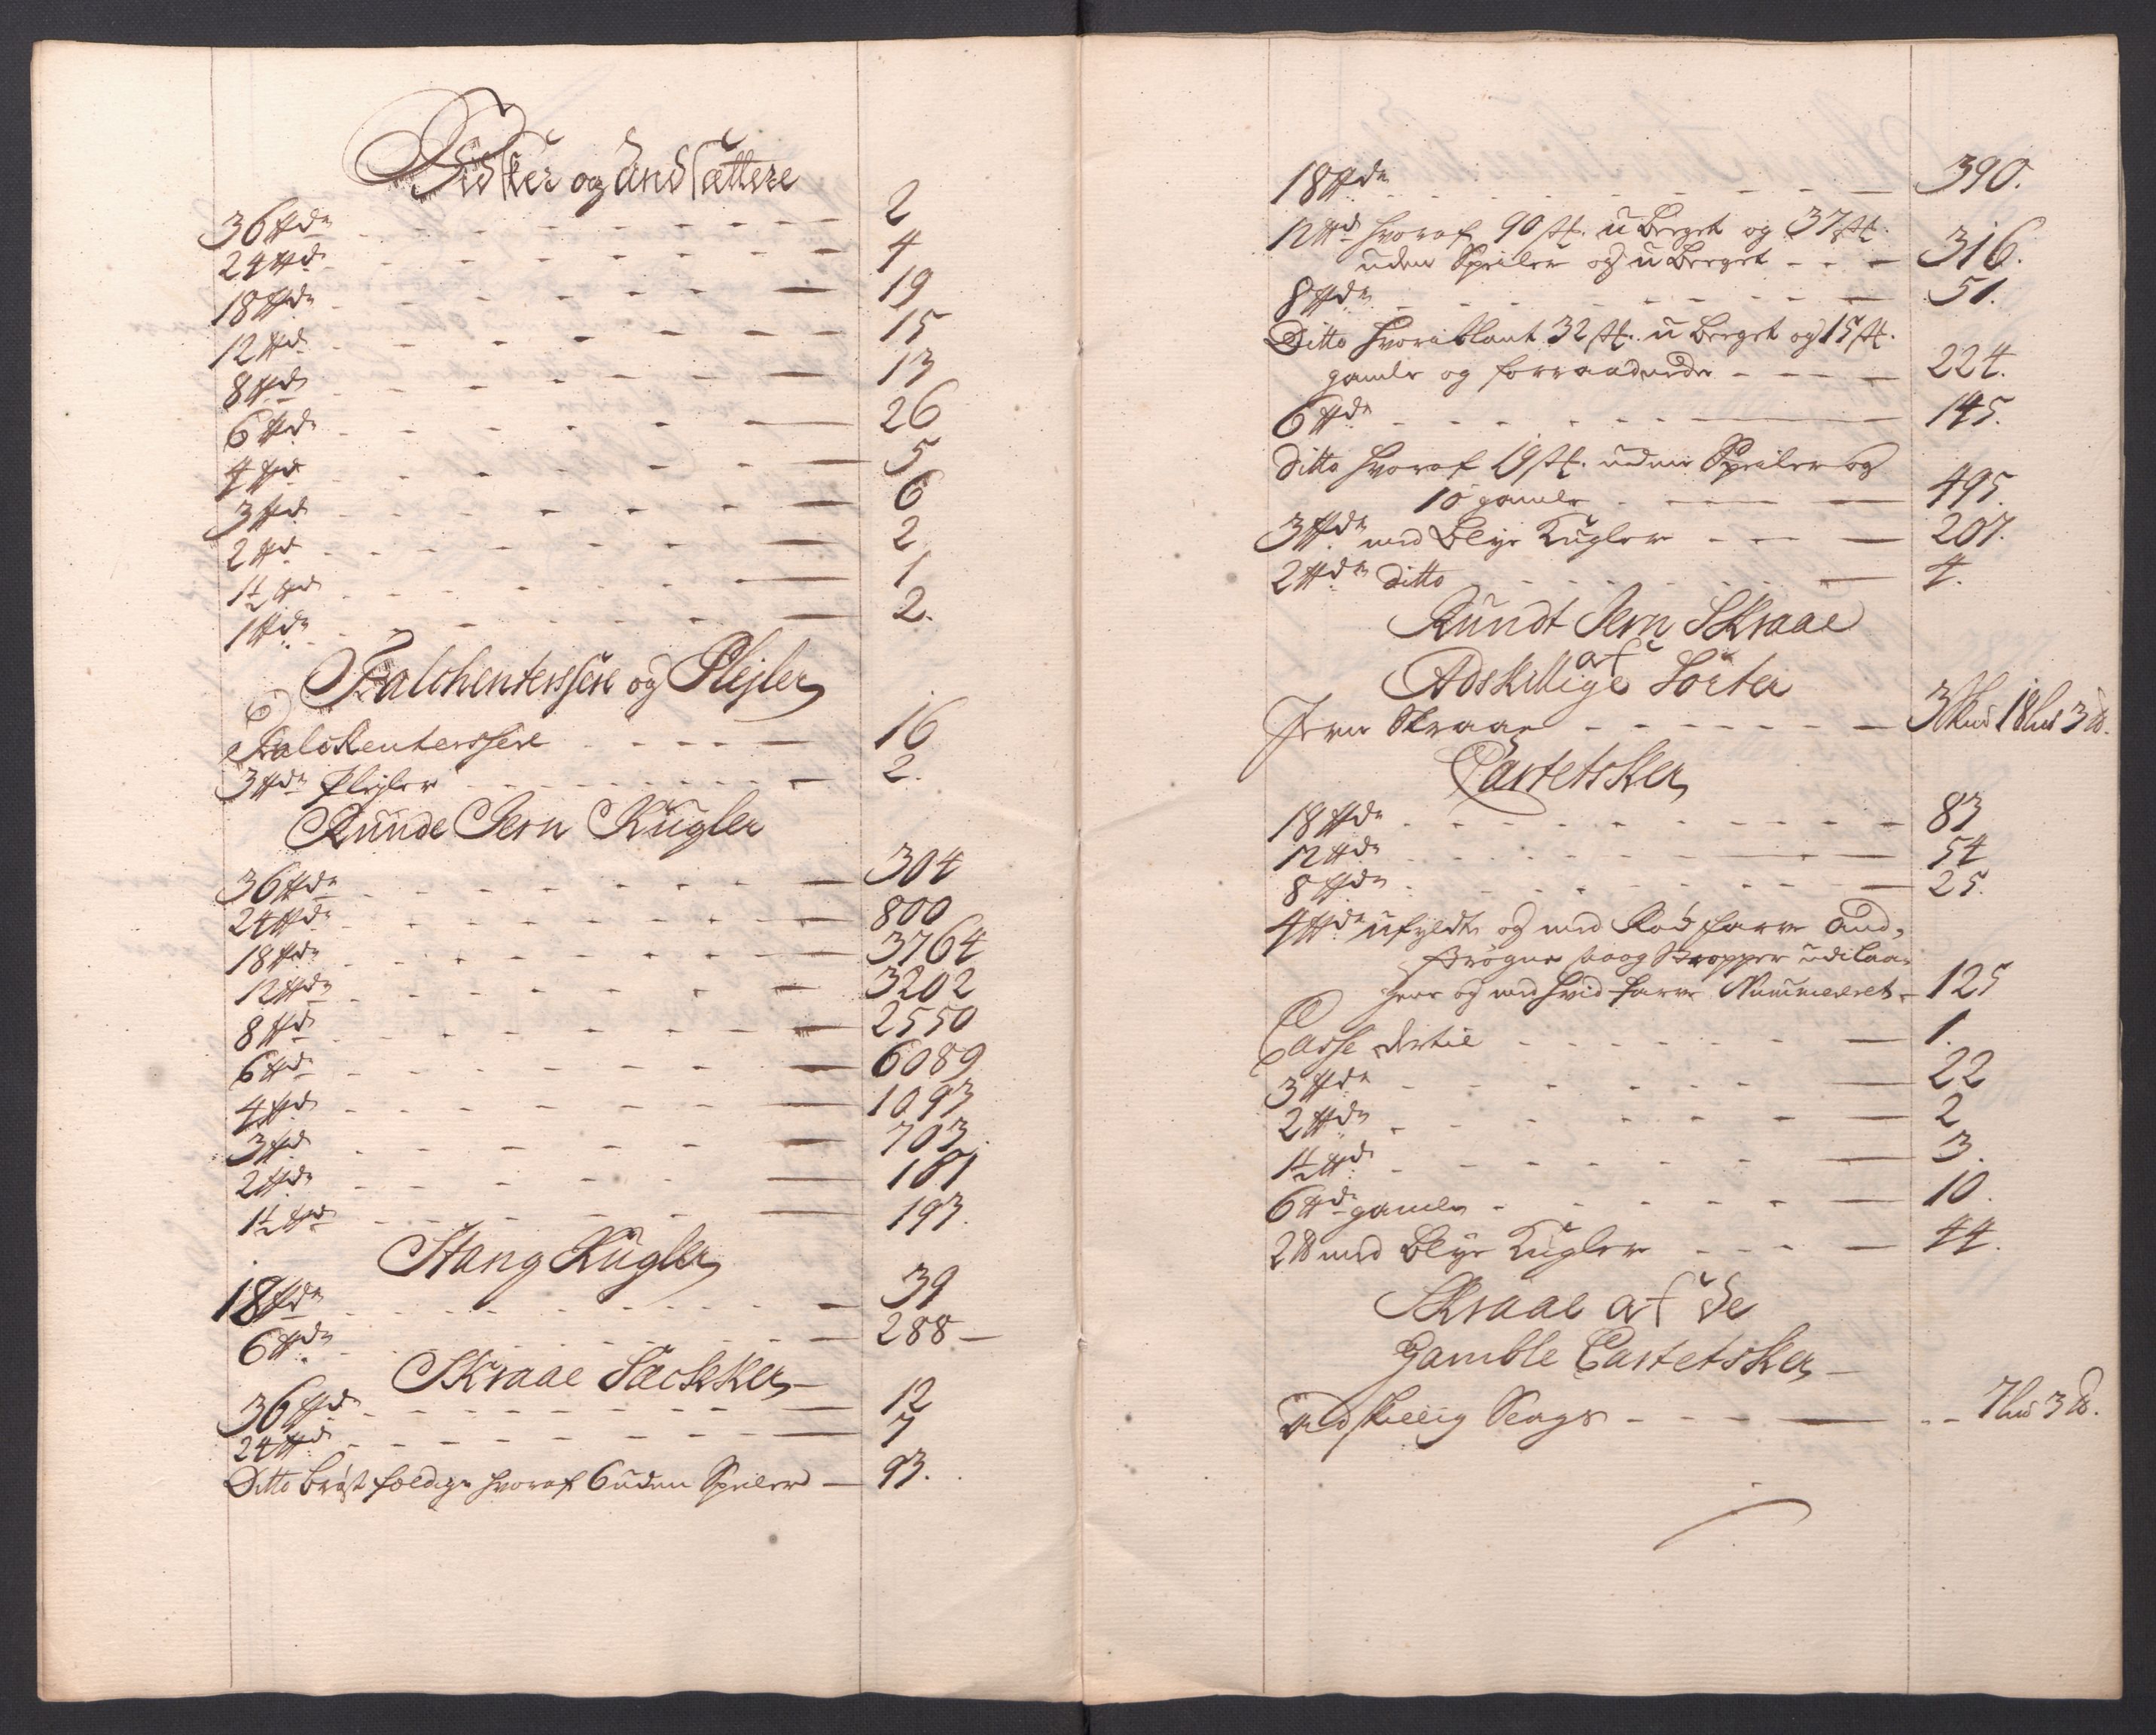 Visker og Andsættere
36 ℔d: 2
24 ℔d: 4
18 ℔d: 19
12 ℔d: 15
8 ℔d: 13
6 ℔d: 26
4 ℔d: 5
3 ℔d: 6
2 ℔d: 2
1½ ℔d: 1
1 ℔d: 2.
Falchentersser og Plejler
Falckentersser 16
3 ℔d: Plejler 2.
Runde Jern Kugler
36 ℔d: 304
24 ℔d: 800
18 ℔d: 3764
12 ℔d: 3202
8 ℔d: 2550
6 ℔d: 6089
4 ℔d: 1093
3 ℔d: 703.
2 ℔d: 181
1½ ℔d: 193.
Stang Kugler
18 ℔d: 39
6 ℔d: 288
Skraae Sæckker
36 ℔d: 12
24 ℔d: 7
Ditto brøst foldige hvoraf 6 uden Speiler 93.
18 ℔d: 390.
12 ℔d: hvoraf 90 st. u Berget og 37 st.
uden Speiler og u Berget 316.
8 ℔d: 51.
Ditto hvoriblant 32 st. u Berget og 15 st.
gamle og forraadnede 224.
6 ℔d: 145.
Ditto hvoraf 19 st. uden Speiler og
10 gamle 495.
3 ℔d: med Blye Kugler 207.
2 ℔d: Ditto 4.
Rundt Jern Skraae
af
Adskillige Sorter
Jern Skraae 3 18 3 ℔.
Cartetsker
18 ℔d: 83
12 ℔d: 54
8 ℔d: 25.
4 ℔d: ufyldte og med Rød farve
og med hvid farve Nummereret 125
Casse dertil 1.
3 ℔d: 22
2 ℔d: 2
1½ ℔d: 3.
6 ℔d: gamle 10.
2 ℔ med Blye Kugler 44.
Skraae af de
Gamble Cartetsker
Adskillig Slags 7 3 ℔.